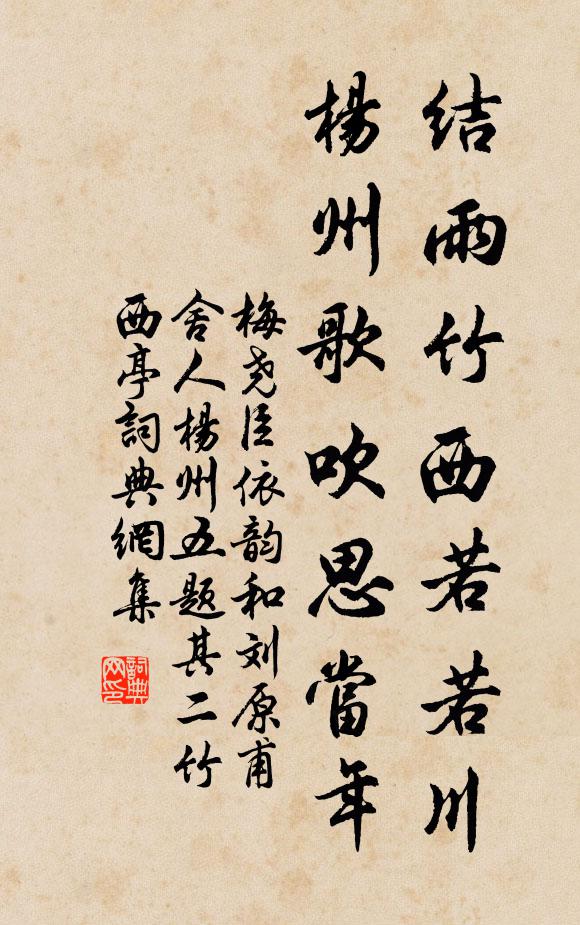 结雨竹西若若川
楊州歌吹思當年
梅尧臣依韵和刘原甫
舍人楊州五题其二竹
西亭詞典網集
詞典网印